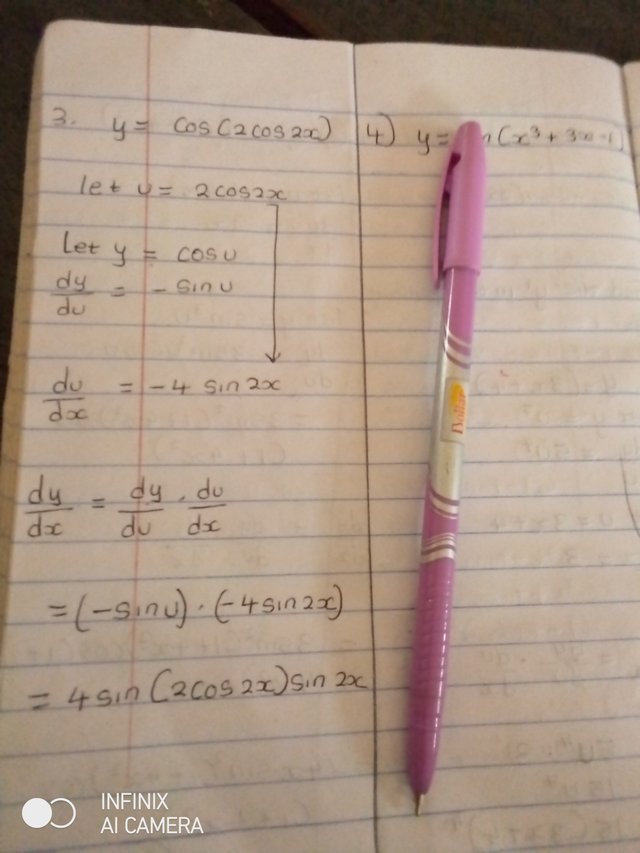 3. y = cos(2cos2x)
let u = 2cos2x
let y = cosu
dy/du = - sinu
du/dx = -4 sin2x
dy/dx = dy/du . du/dx
= (-sinu) . (-4sin2x)
= 4sin(2cos2x)sin2x
4) y = n(x³ + 3x - 1)
Dollar
INFINIX
AI CAMERA